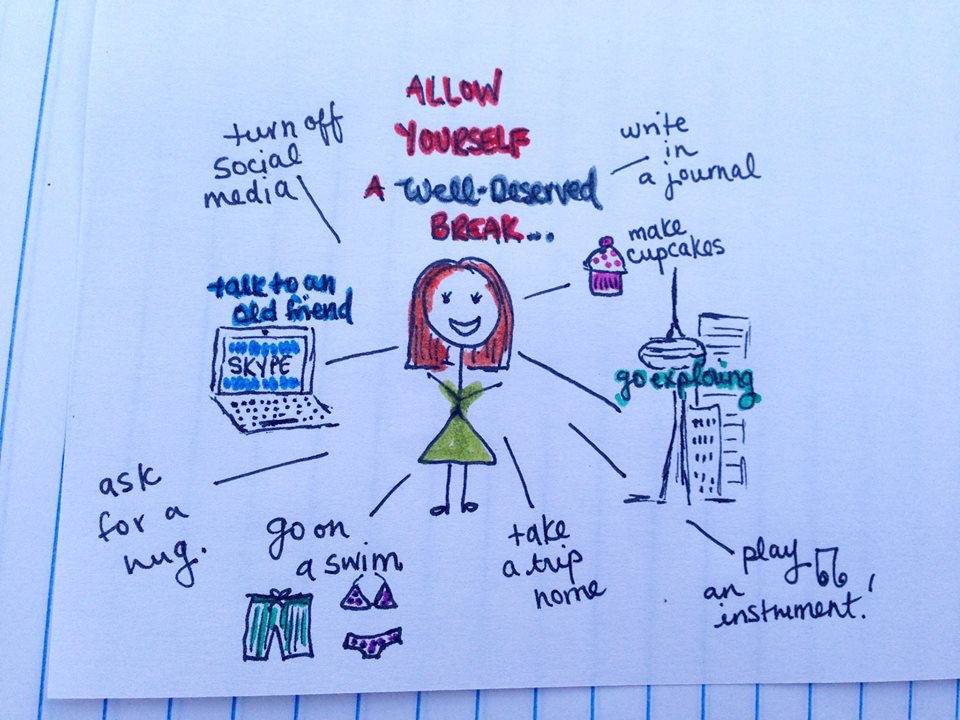 ALLOW
YOURSELF
A Well-Deserved
BREAK...
turn off
social
media
write
in
a journal
make
cupcakes
talk to an
old friend
SKYPE
go exploring
ask
for a
hug.
go on
a swim
take
a trip
home
play
an
instrument!